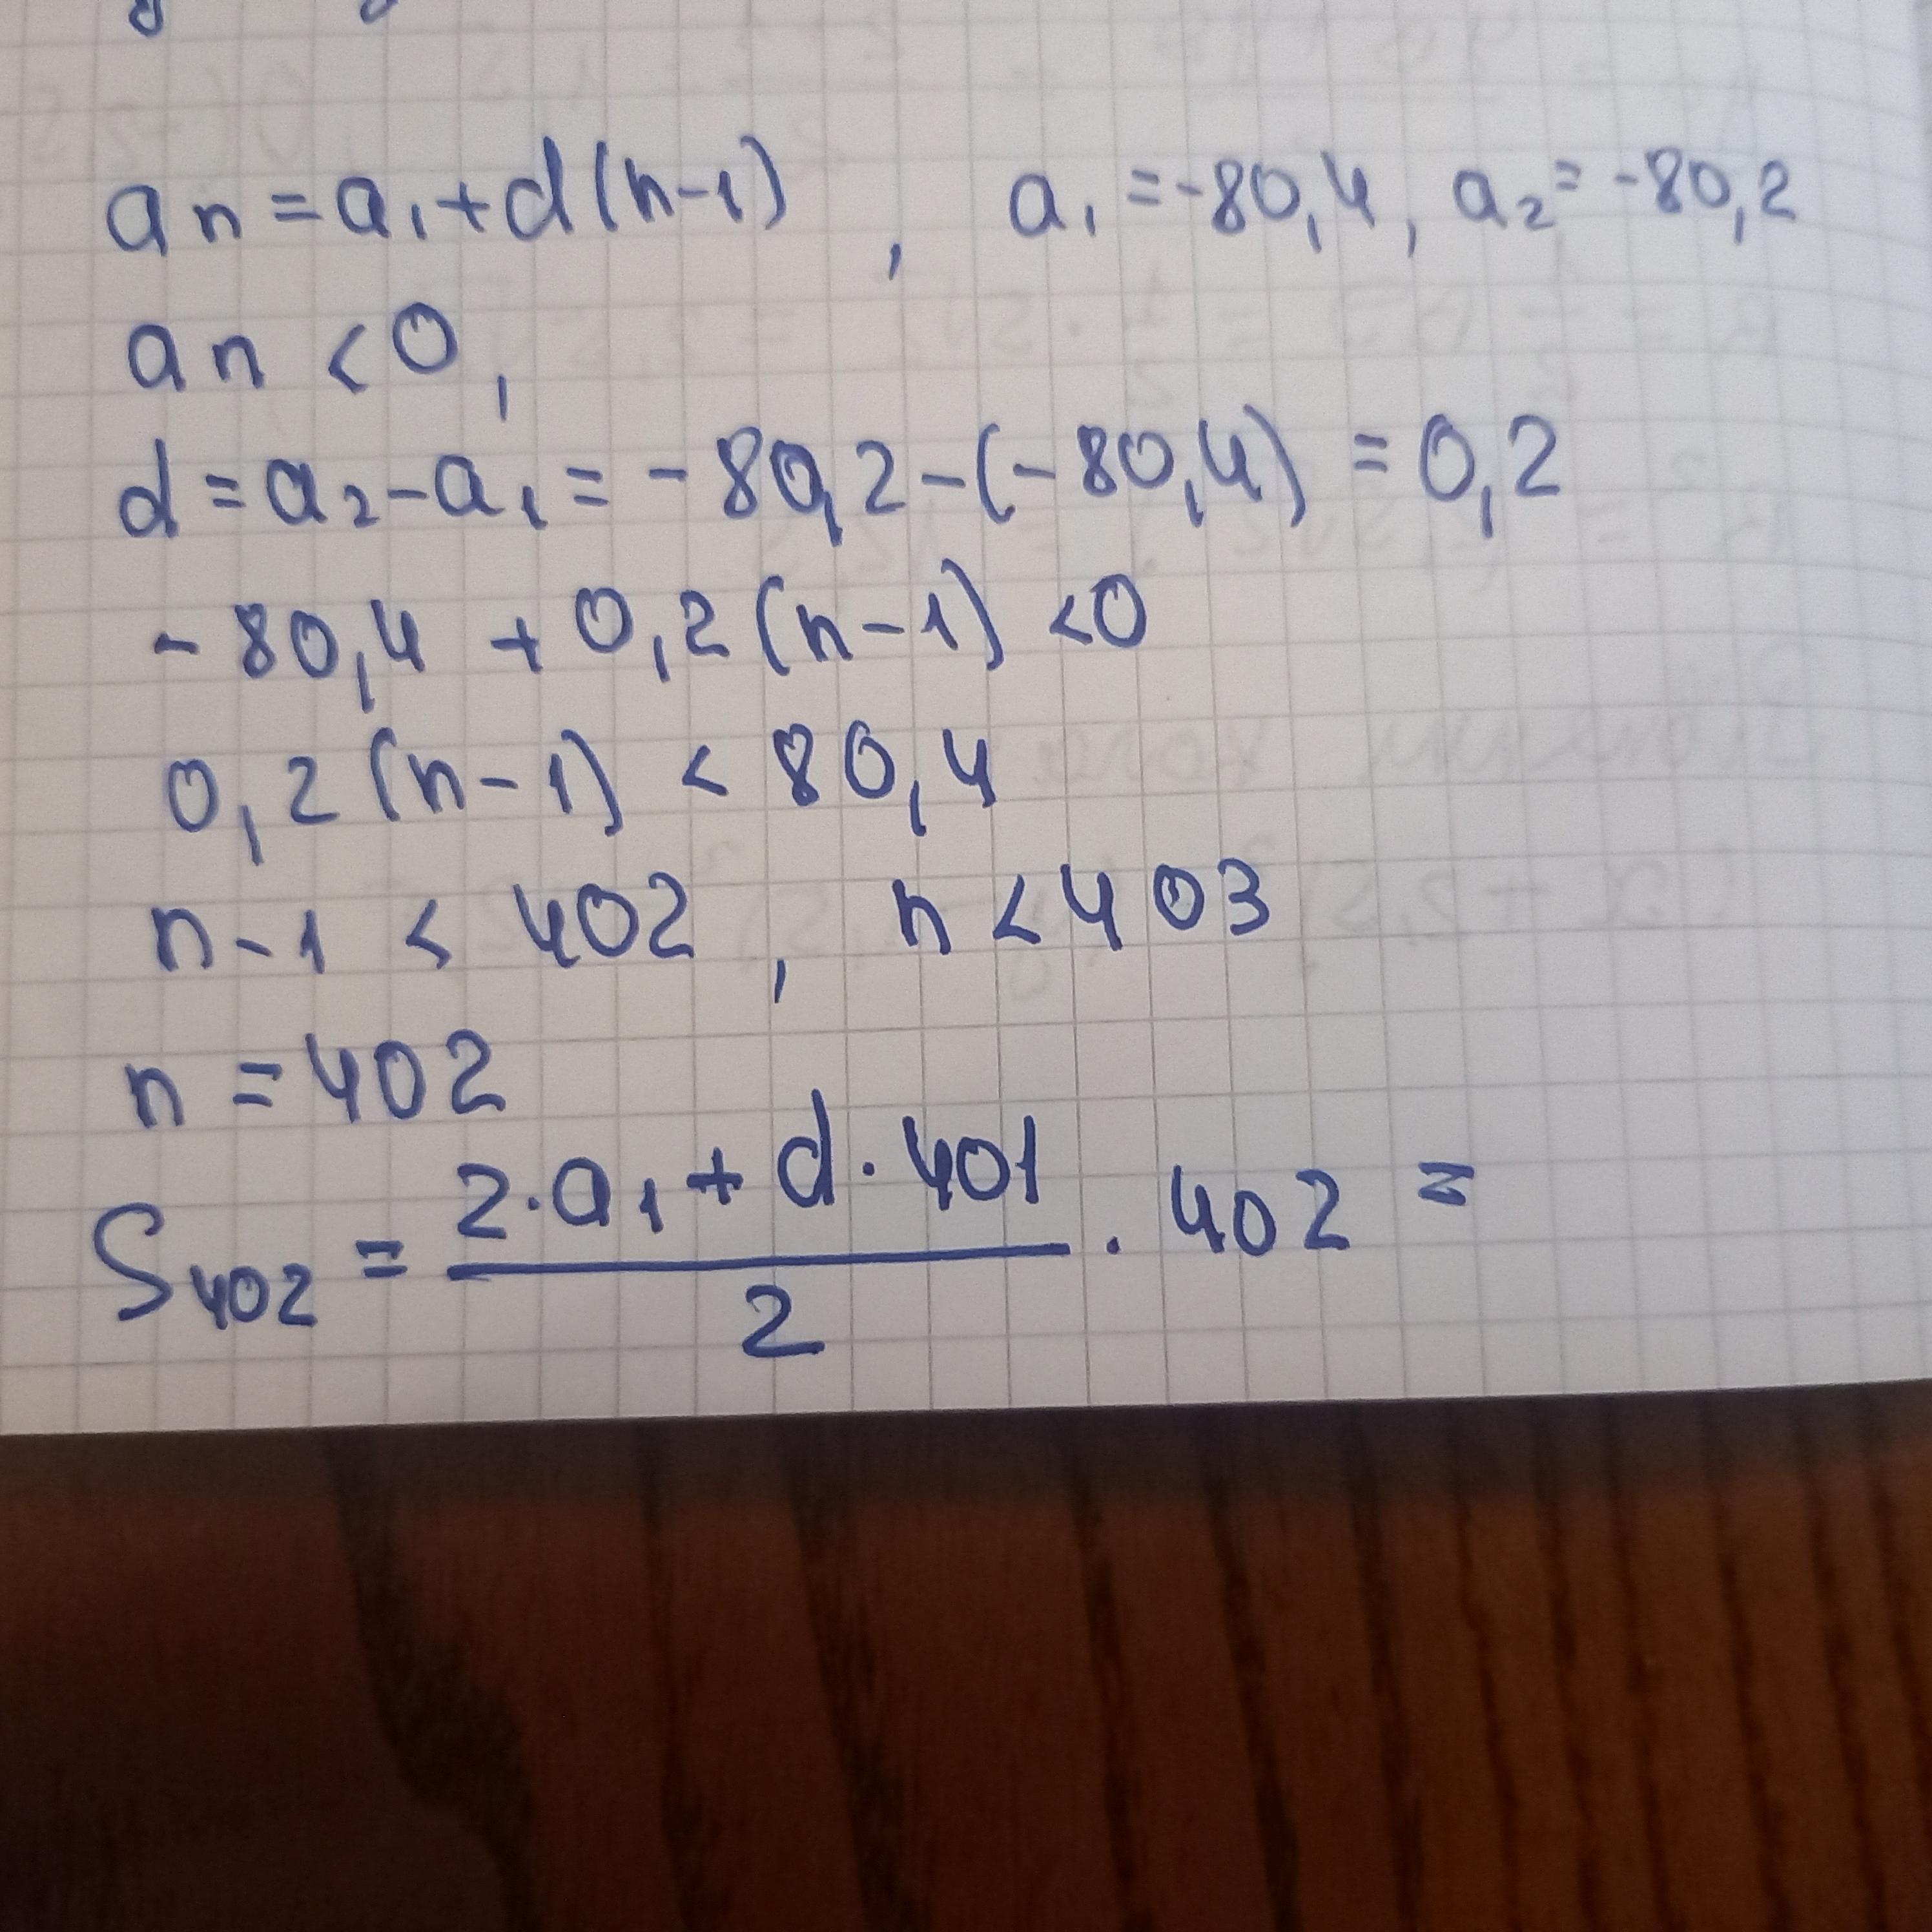 an = a₁ + d(n-1) , a₁ = -80,4, a₂ = -80,2
an < 0,
d = a₂ - a₁ = -80,2 - (-80,4) = 0,2
- 80,4 + 0,2 (n-1) < 0
0,2 (n-1) < 80,4
n-1 < 402 , n < 403
n = 402
S₄₀₂ = (2·a₁ + d·401)/2 · 402 =